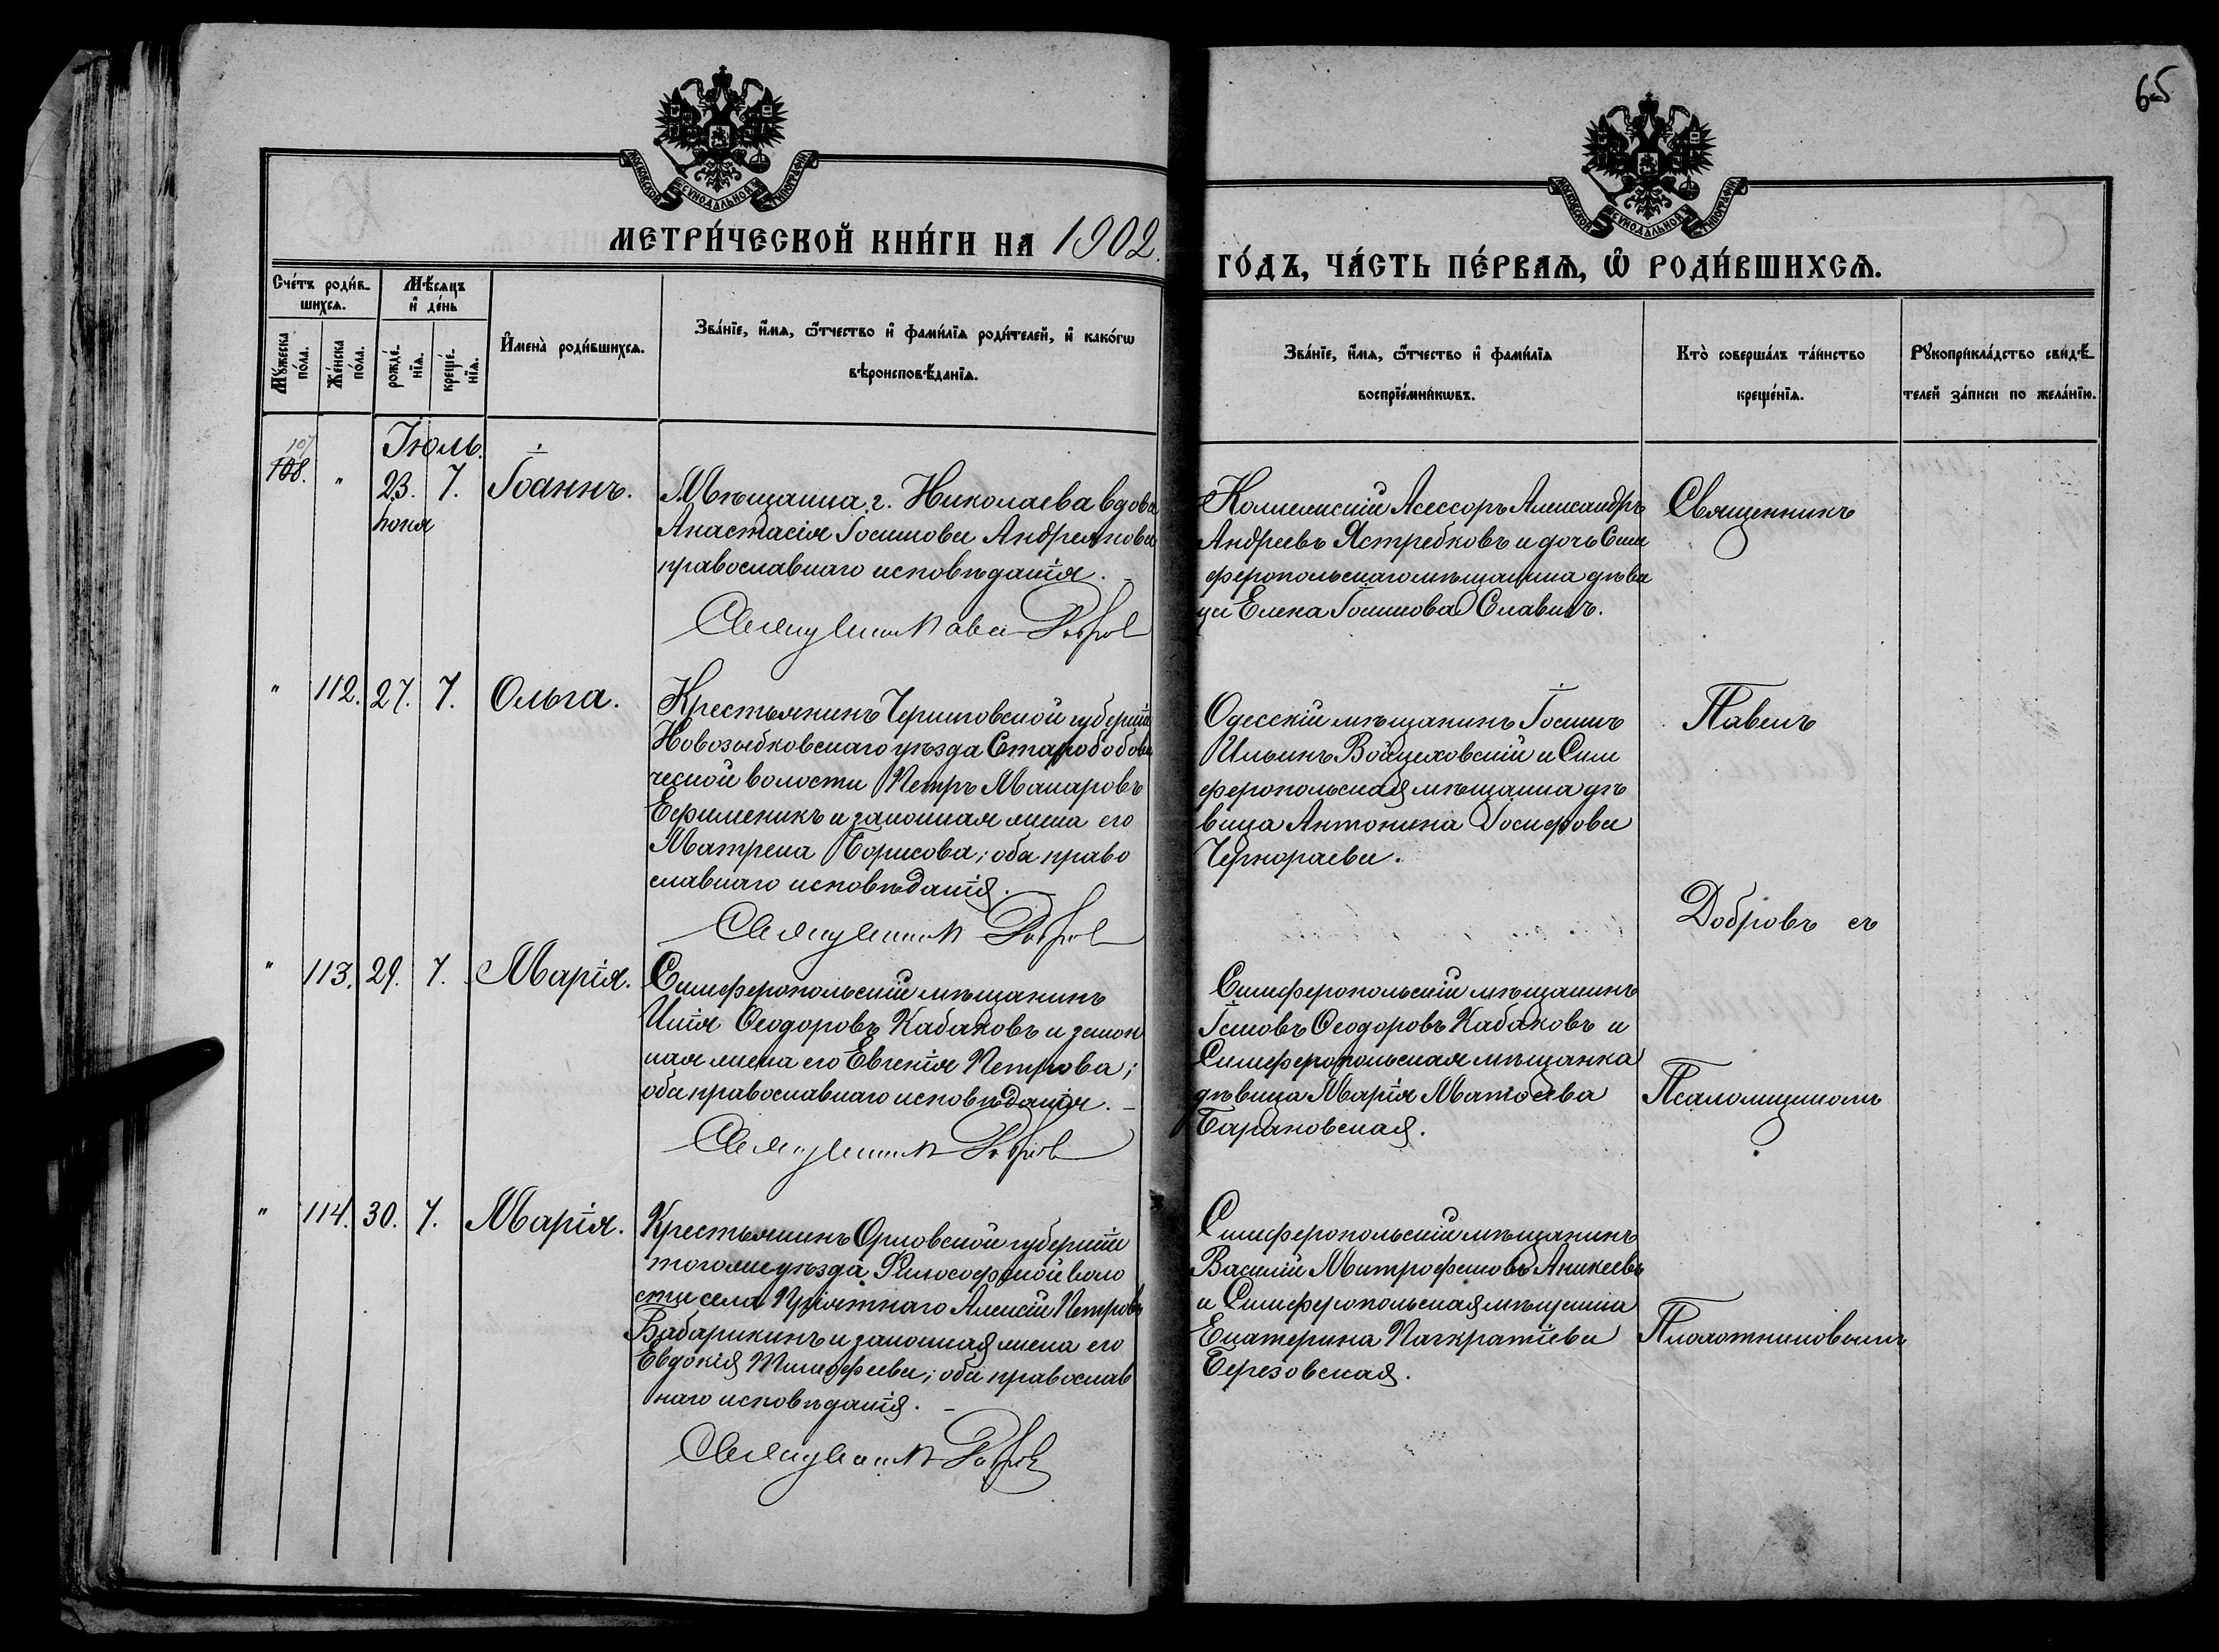 65
МОСКОВСКОЙ СУНОДАЛЬНОЙ ТИПОГРАФІИ
МОСКОВСКОЙ СУНОДАЛЬНОЙ ТИПОГРАФІИ
МЕТРИ́ЧЕСКОЙ КНИ́ГИ НА 1902.
ГО́ДЪ, ЧА́СТЬ ПЕ́РВАѦ, Ѡ҆ РОДИ́ВШИХСѦ.
Сче́тъ роди́в-
шихсѧ.
Мѣ́сѧцъ
и҆ де́нь
Мꙋ́жеска
по́ла.
Же́нска
по́ла.
рожде́-
нїѧ.
креще́-
нїѧ.
И҆мена̀ роди́вшихсѧ.
Зва́нїе, и҆́мѧ, ѻ҆́тчество и҆ фами́лїѧ роди́телей, и҆ како́гѡ
вѣроисповѣ́данїѧ.
Зва́нїе, и҆́мѧ, ѻ҆́тчество и҆ фами́лїѧ
воспрїе́мникѡвъ.
Кто̀ соверша́лъ та́инство
креще́нїѧ.
Рꙋкоприкла́дство свидѣ́-
телей за́писи по жела́нїю.
Іюль.
107
108. " 23. 7. Іоаннъ.
Іюня
Мѣщанка г. Николаева вдова
Анастасія Іосифова Андреянова
православнаго исповѣданія.
Священникъ Павелъ Добровъ
Коллежскій Асессоръ Александръ
Андреевъ Ястребковъ и дочь Сим
феропольскаго мѣщанина дѣви
ца Елена Іосифова Славичъ.
Священникъ
" 112. 27. 7. Ольга.
Крестьянинъ Черниговской губерніи
Новозыбковскаго уѣзда Старобобови
ческой волости Петръ Макаровъ
Ефименкинъ и законная жена его
Матрена Борисова; оба право
славнаго исповѣданія.
Священникъ Добровъ
Одесскій мѣщанинъ Іосифъ
Ильинъ Войцеховскій и Сим
феропольская мѣщанка дѣ
вица Антонина Іосифова
Черногаева.
Павелъ
Добровъ съ
" 113. 29. 7. Марія.
Симферопольскій мѣщанинъ
Илія Ѳеодоровъ Кабаковъ и закон
ная жена его Евгенія Петрова;
оба православнаго исповѣданія.
Священникъ Добровъ
Симферопольскій мѣщанинъ
Іаковъ Ѳеодоровъ Кабаковъ и
Симферопольская мѣщанка
дѣвица Марія Матѳеева
Барановская.
Псаломщикомъ
" 114. 30. 7. Марія.
Крестьянинъ Орловской губерніи
того же уѣзда Философской воло
сти села Пріятнаго Алексій Петровъ
Бабарикинъ и законная жена его
Евдокія Тимофеева; оба православ
наго исповѣданія.
Священникъ Добровъ
Симферопольскій мѣщанинъ
Василій Митрофановъ Аникеевъ
и Симферопольская мѣщанка
Екатерина Панкратіева
Березовская.
Плохотниковымъ